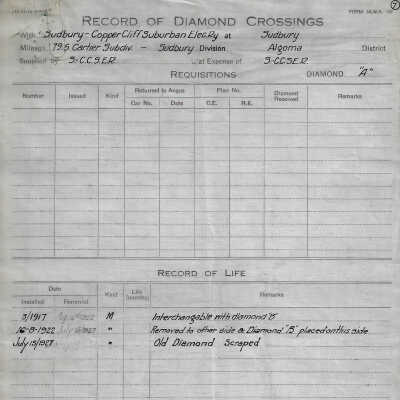 RECORD OF DIAMOND CROSSINGS
With Sudbury - Copper Cliff Suburban Elec Ry at Sudbury
Mileage 79.6 Cartier Subdiv. - Sudbury Division Algoma District
Supplied by S.C.C.S.E.R. at Expense of S.C.C.S.E.R.
REQUISITIONS DIAMOND "A"
Number Issued Kind Returned to Angus Plan No. Diamond Received Remarks
Car No. Date C.E. R.E.
RECORD OF LIFE
Date Kind Life Remarks
Installed Removed
3/1917 M Interchangable with diamond "B"
16-8-1922 July 15/1927 " Removed to other side & Diamond "B" placed on this side
July 15/1927 " Old Diamond Scraped